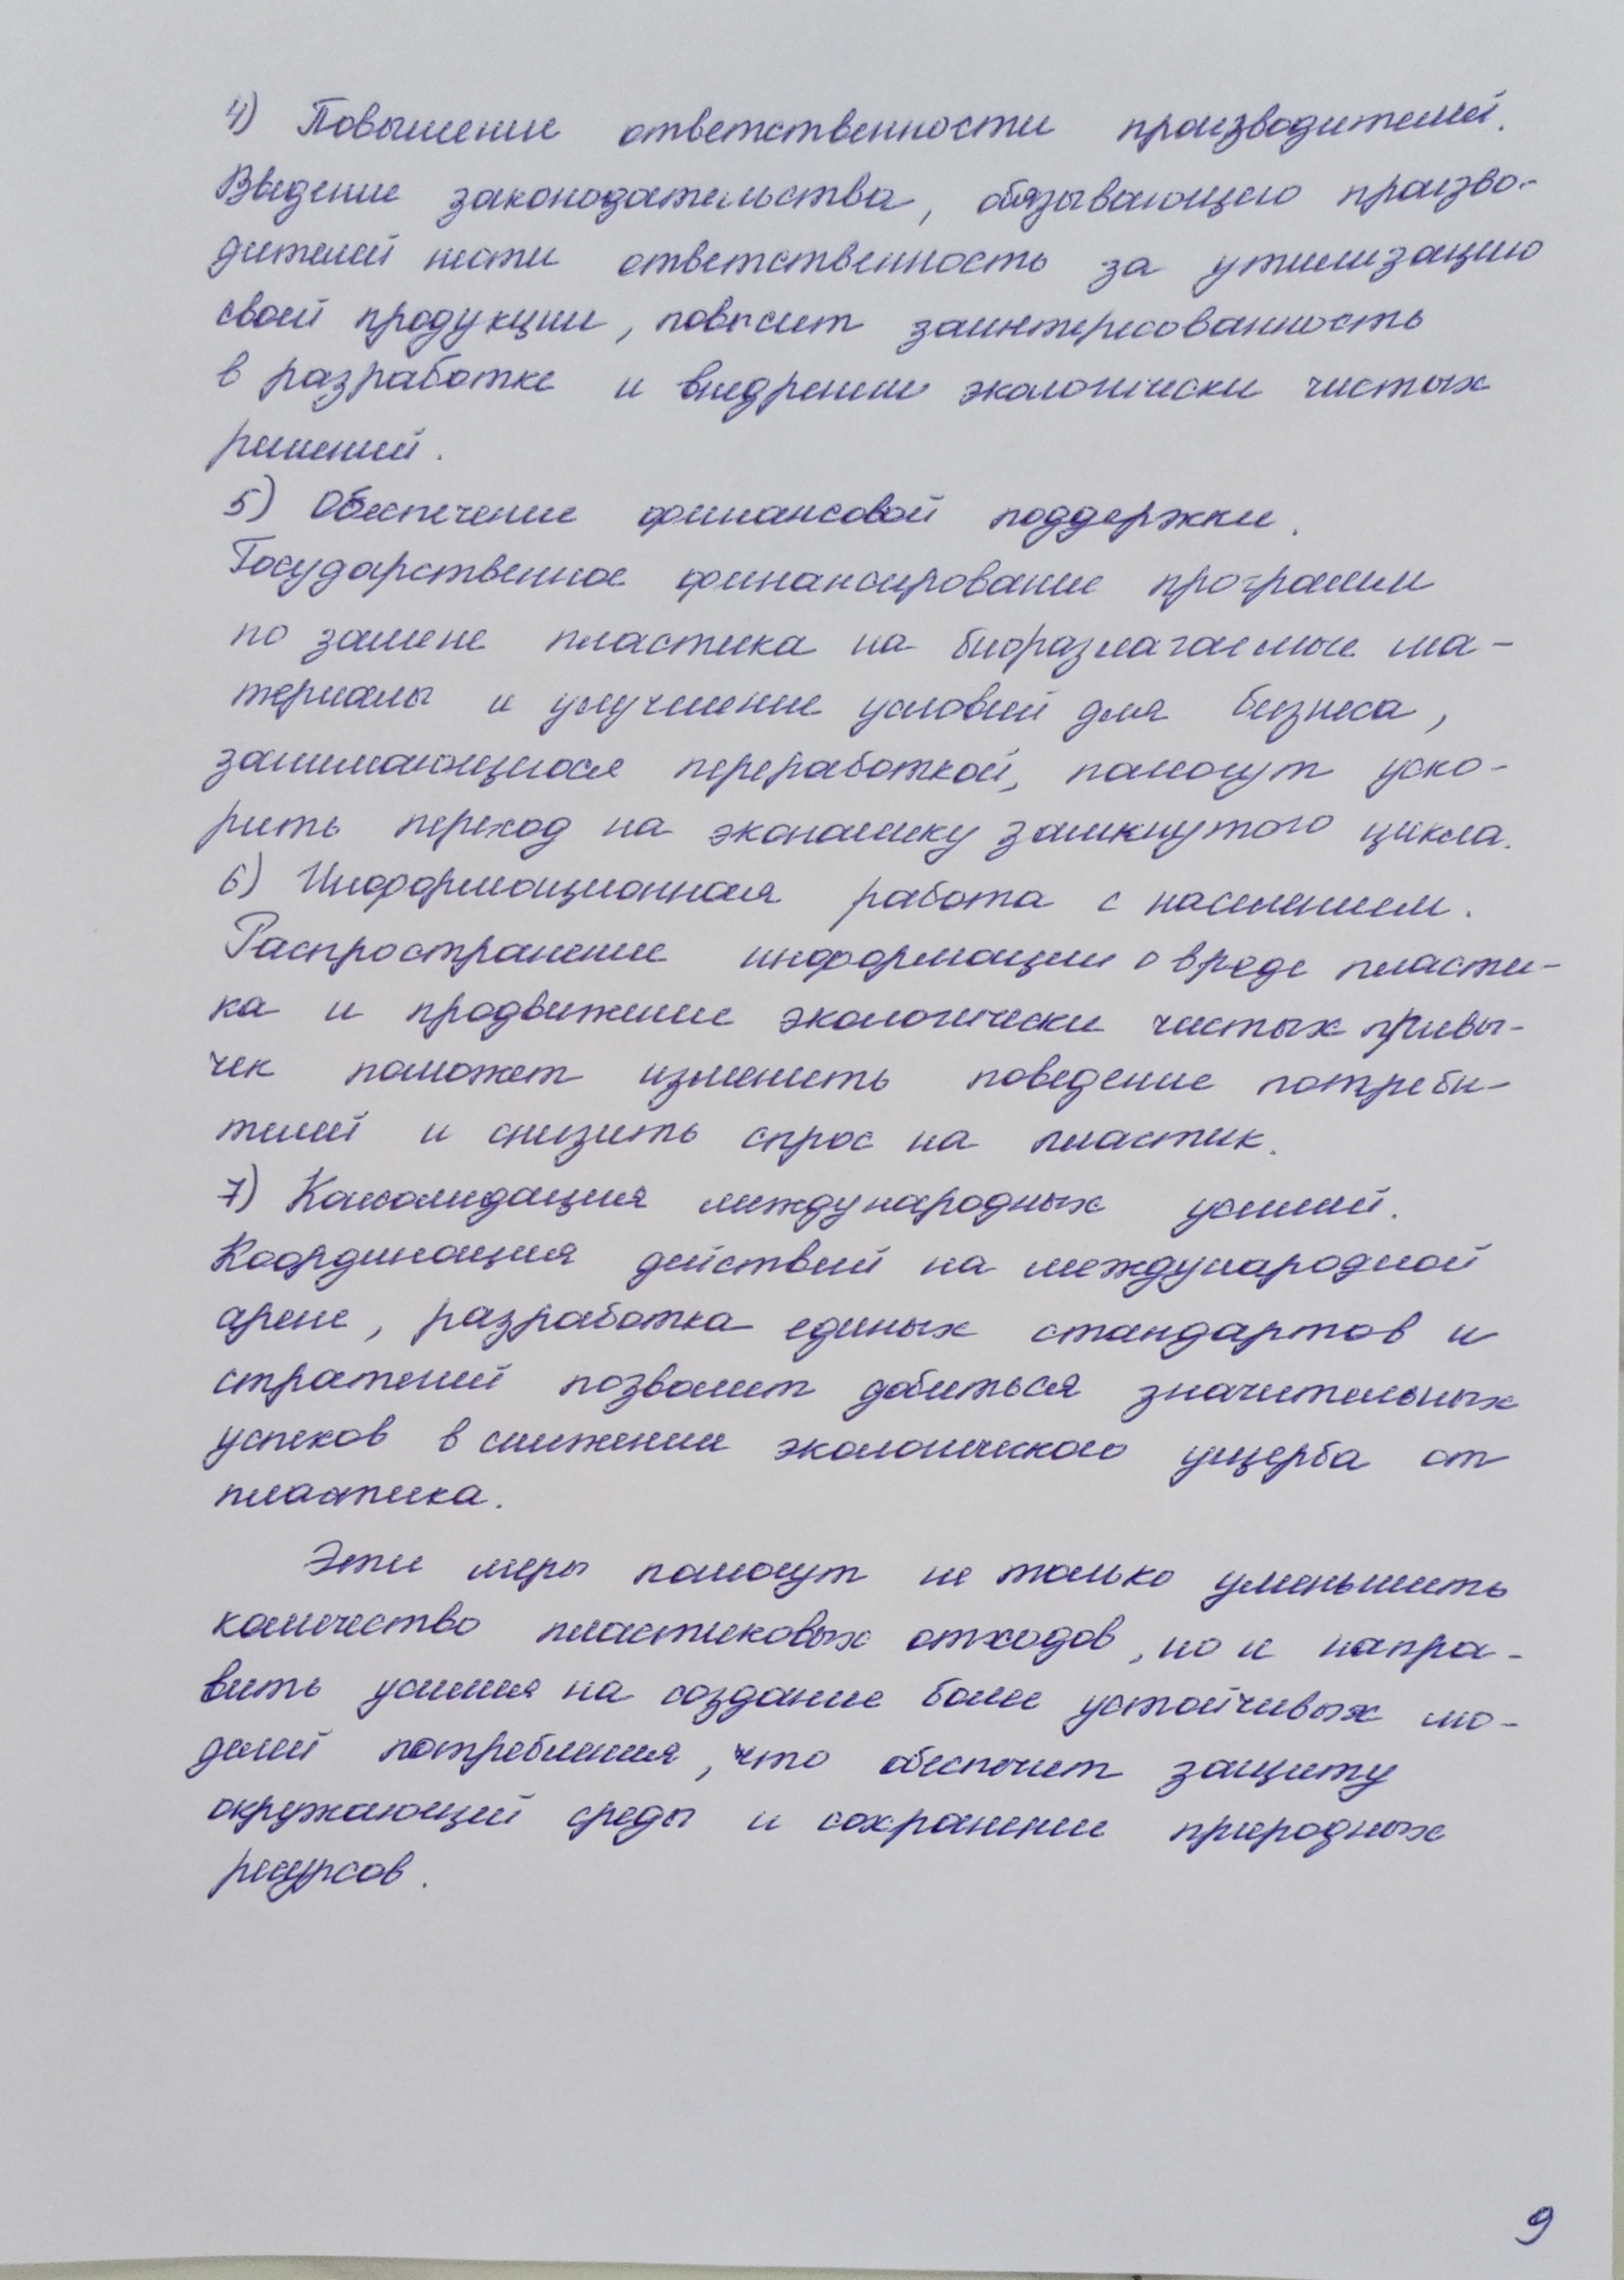 4) Повышение ответственности производителей.
Введение законодательства, обязывающего произво-
дителей нести ответственность за утилизацию
своей продукции, повысит заинтересованность
в разработке и внедрении экологически чистых
решений.
5) Обеспечение финансовой поддержки.
Государственное финансирование программ
по замене пластика на биоразлагаемые ма-
териалы и улучшение условий для бизнеса,
занимающегося переработкой, помогут уско-
рить переход на экономику замкнутого цикла.
6) Информационная работа с населением.
Распространение информации о вреде пласти-
ка и продвижение экологически чистых привы-
чек поможет изменить поведение потреби-
телей и снизить спрос на пластик.
7) Консолидация международных усилий.
Координация действий на международной
арене, разработка единых стандартов и
стратегий позволит добиться значительных
успехов в снижении экологического ущерба от
пластика.
Эти меры помогут не только уменьшить
количество пластиковых отходов, но и напра-
вить усилия на создание более устойчивых мо-
делей потребления, что обеспечит защиту
окружающей среды и сохранение природных
ресурсов.
9